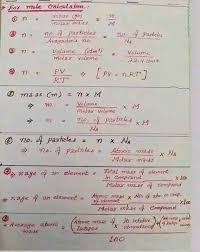 For mole Calculation:
① n = mass (m) / molar mass = m / M
② n = no. of particles / Avogadro's no. = no. of particles / NA
③ n = Volume (dm³) / molar volume = Volume / 22.4
④ n = PV / RT ⇒ [PV = nRT]
mass (m) = n × M
⇒ m = Volume / molar volume × M
⇒ m = no. of particles / NA × M
no. of particles = n × NA
⇒ no. of particles = mass / Molar mass × NA
%age of an element = Total mass of element in compound / Molar mass of compound × 100
%age of an element = Atomic mass × No. of / Molar mass of compound
Average atomic mass =
100